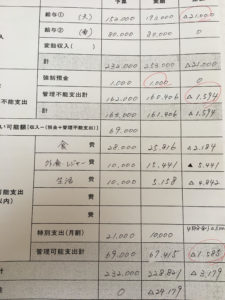 予算 実績
給与① (夫) 152,000 173,000 △21,000
給与② (妻) 80,000 80,000 0
変動収入( )
計 232,000 253,000 △21,000
強制預金 1,000 1,000 0
管理不能支出計 162,000 160,406 △1,594
不能支出計 163,000 161,406 △1,594
い可能額(収入-(預金+管理不能支出)) 69,000
食 費 28,000 25,816 △2,184
外食・レジャー 費 10,000 15,441 ▲5,441
生活 費 10,000 5,158 △4,842
費
費
特別支出(月割) 21,000 10,000
管理可能支出計 69,000 67,415 △1,585
計 232,000 228,821 △3,179
0 △24,179